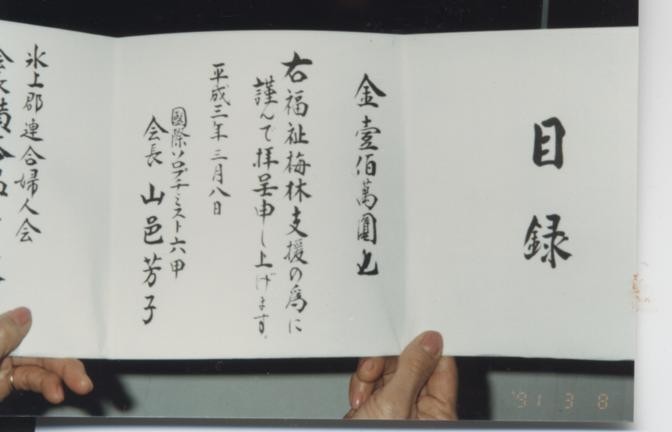 目録
金壹佰萬圓也
右福祉梅林支援の為に
謹んで拝呈申し上げます。
平成三年三月八日
國際ソロプチミスト六甲
会長 山邑芳子
氷上郡連合婦人会
会長
'91 3 8